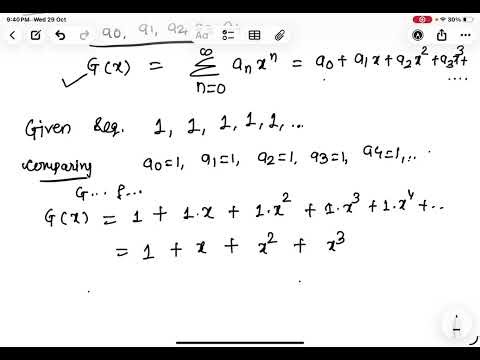 9:40 PM Wed 29 Oct
30%
a0, a1, a2
Aa
G(x) = ∞∑n=0 aₙxⁿ = a0 + a1x + a2x² + a3x³ + ....
Given Seq. 1, 1, 1, 1, 1, ...
Comparing a0=1, a1=1, a2=1, a3=1, a4=1, ...
G... f...
G(x) = 1 + 1·x + 1·x² + 1·x³ + 1·x⁴ + ..
= 1 + x + x² + x³